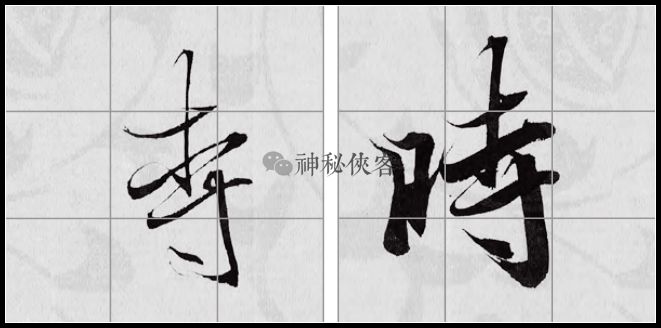 寺 時
神秘俠客